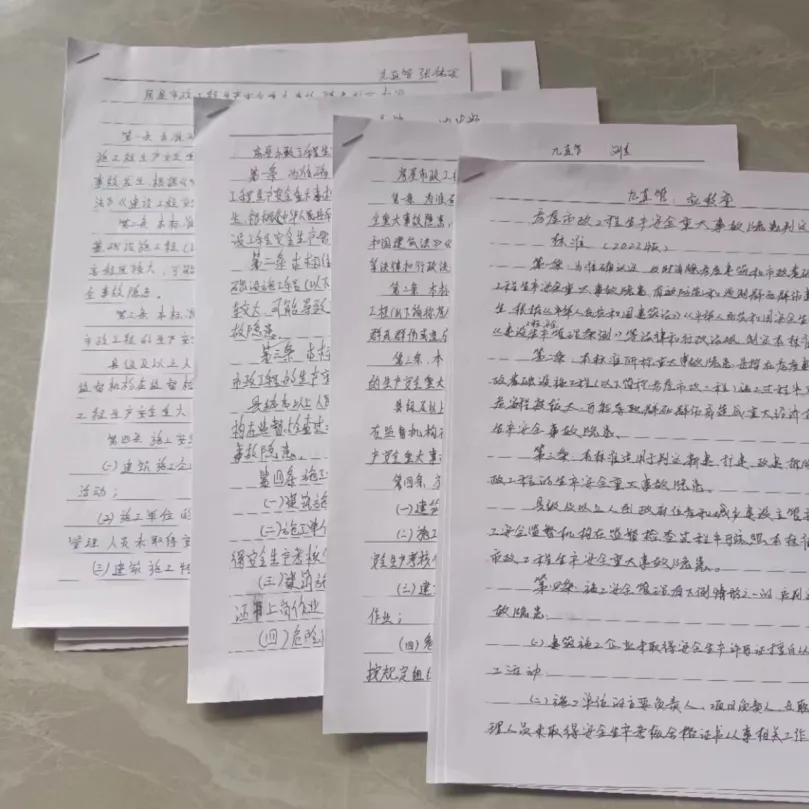 九直管 张
房屋市政工程生产安全重大事故隐患判定标准
第一条 为准
施工程生产安全
事故发生,根据《
法》《建设工程安
第二条 本标准
基础设施工程(
害程度较大、可能
全事故隐患。
第三条 本标准
市政工程的生产安
县级及以上人
监督机构在监督检
工程生产安全重大
第四条 施工安
(一)建筑施工企
活动;
(2)施工单位的
管理人员未取得安
(三)建筑施工特
房屋市政工程生
第一条 为准确
工程生产安全重大事故
生,根据《中华人民共和
设工程安全生产管
第二条 本标准
础设施工程(以下
较大、可能导致
故隐患。
第三条 本标
市政工程的生产安
县级及以上人民
构在监督检查过
事故隐患。
第四条 施工
(一)建筑施
(二)施工单位
得安全生产考核
(三)建筑施
证书上岗作业
(四)危险
房屋市政工
第一条 为准
全重大事故隐患,
和国建筑法》《
等法律和行政法
第二条 本标
工程(以下简称房
群死群伤或造成
第三条 本
的生产安全重大
县级及以上
在监督机构
产安全重大事
第四条 施
(一)建筑
(二)施工
安全生产考核
(三)建
作业;
(四)危
按规定组
九直管
九直管:
房屋市政工程生产安全重大事故隐患判定
标准(2022版)
第一条,为准确认定、及时消除房屋建筑和市政基础
工程生产安全重大事故隐患,有效防范和遏制群死群伤事
生,根据《中华人民共和国建筑法》《中华人民共和国安全生
《建设工程安全生产管理条例》等法律和行政法规,制定本标准
第二条,本标准所称重大事故隐患,是指在房屋
政基础设施工程(以下简称房屋市政工程)施工过程中
危害程度较大、可能导致群死群伤或造成重大经济
生产安全事故隐患。
第三条,本标准适用于判定新建、扩建、改建、拆除
政工程的生产安全重大事故隐患。
县级及以上人民政府住房和城乡建设主管
工安全监督机构在监督检查过程中可依照本标准
市政工程生产安全重大事故隐患。
第四条,施工安全管理有下列情形之一的,应判
故隐患:
(一)建筑施工企业未取得安全生产许可证擅自从
工活动
(二)施工单位的主要负责人、项目负责人、专职
理人员未取得安全生产考核合格证书从事相关工作